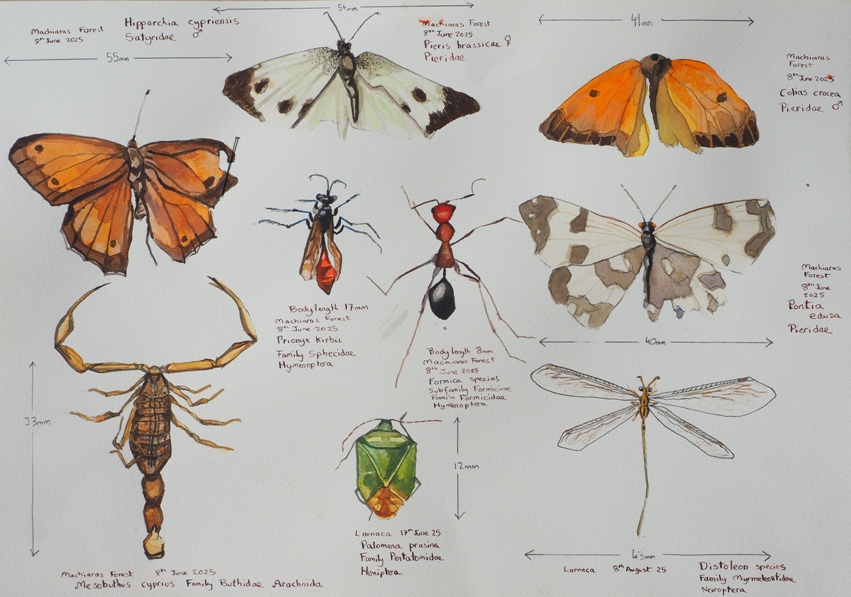 Machiaras Forest
5th June 2025
Hipparchia cypriensis
Satyridae ♂
55mm
54mm
Machiaras Forest
8th June 2025
Pieris brassicae ♀
Pieridae
41mm
Machiaras
Forest
8th June 2025
Colias crocea
Pieridae ♂
Body length 17mm
Machiaras Forest
8th June 2025
Prionyx Kirbii
Family Sphecidae
Hymenoptera
Body length 8mm
Machiaras Forest
8th June 2025
Formica species
Subfamily Formicinae
Family Formicidae
Hymenoptera
Machiaras
Forest
8th June
2025
Pontia
edusa
Pieridae
40mm
33mm
Machiaras Forest 8th June 2025
Mesobuthus cyprius Family Buthidae Arachnida
12mm
Larnaca 17th June 25
Palomena prasina
Family Pentatomidae
Hemiptera
43mm
Larnaca 8th August 25
Distoleon species
Family Myrmeleontidae
Neuroptera